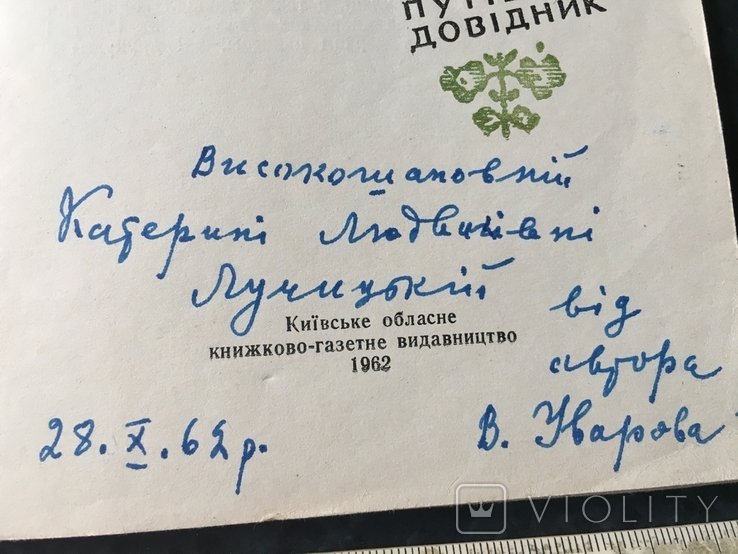 ДОВІДНИК
Високошановній
Катерині Людвиківні
Лучицькій
Київське обласне
книжково-газетне видавництво
1962
від
автора
В. Уварова
28. X. 62 р.
VIOLITY